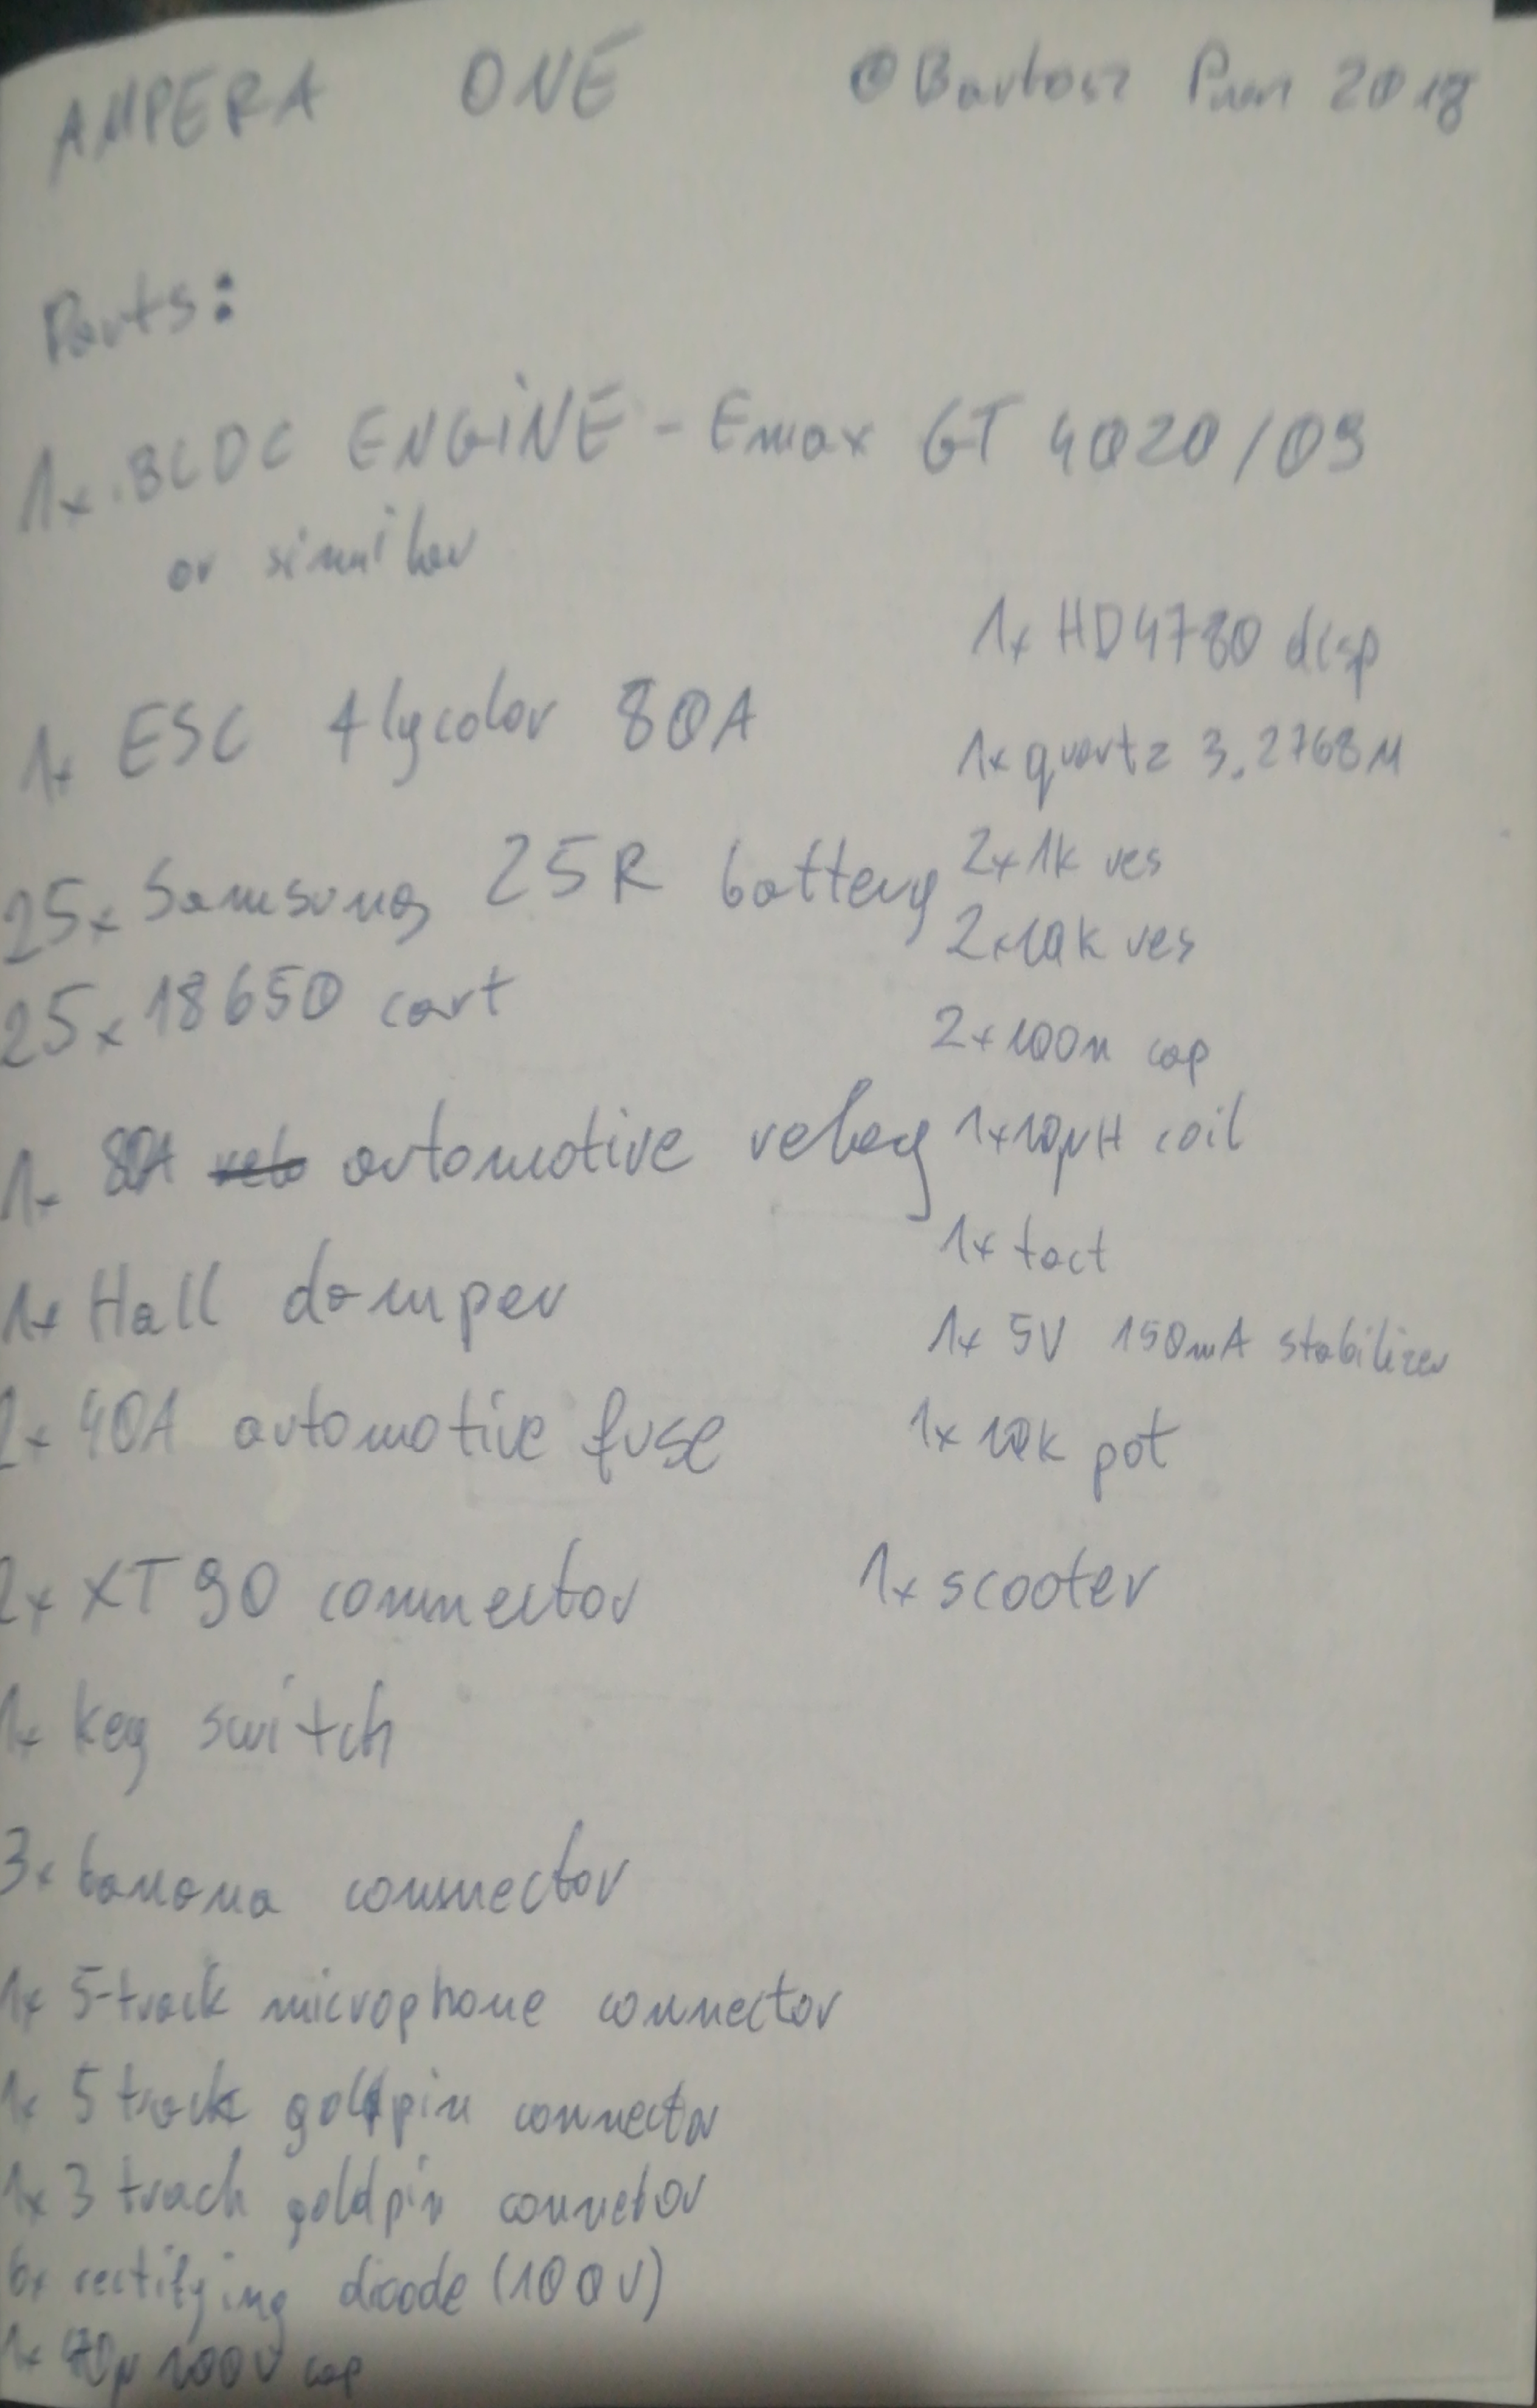 AMPERA ONE
© Bartosz 2018
Parts:
1x BLDC ENGINE - Emax GT 4020/09
or similar
1x ESC flycolor 80A
25x Samsung 25R battery
25x 18650 cart
1x 80A automotive relay
1x Hall damper
2x 40A automotive fuse
2x XT90 connector
1x key switch
3x banana connector
1x 5-track microphone connector
1x 5 track goldpin connector
1x 3 track goldpin connetor
6x rectifying dioode (100V)
1x 100V cap
1x HD4780 disp
1x quartz 3.2768M
2x 1k res
2x 10k res
2x 100n cap
1x 10μH coil
1x tact
1x 5V 150mA stabilizer
1x 10k pot
1x scooter